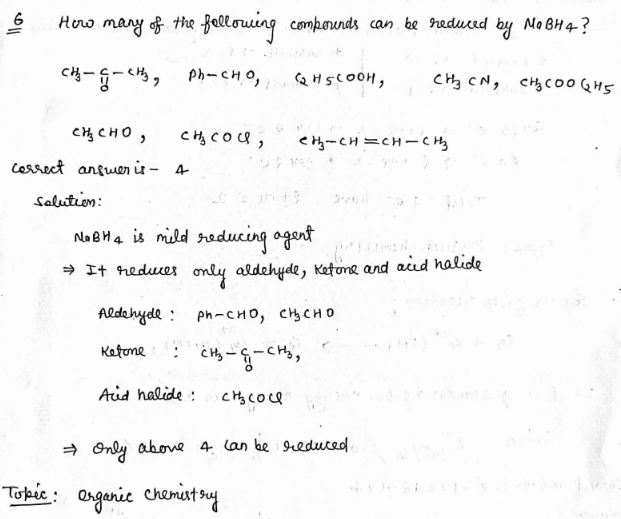 6 How many of the following compounds can be reduced by NaBH4?
CH3-C-CH3, Ph-CHO, C2H5COOH, CH3CN, CH3COOC2H5
O
CH3CHO, CH3COCl, CH3-CH=CH-CH3
Correct answer is - 4
Solution:
NaBH4 is mild reducing agent
⇒ It reduces only aldehyde, Ketone and acid halide
Aldehyde: Ph-CHO, CH3CHO
Ketone : CH3-C-CH3,
O
Acid halide: CH3COCl
⇒ Only above 4 can be reduced
Topic: Organic Chemistry